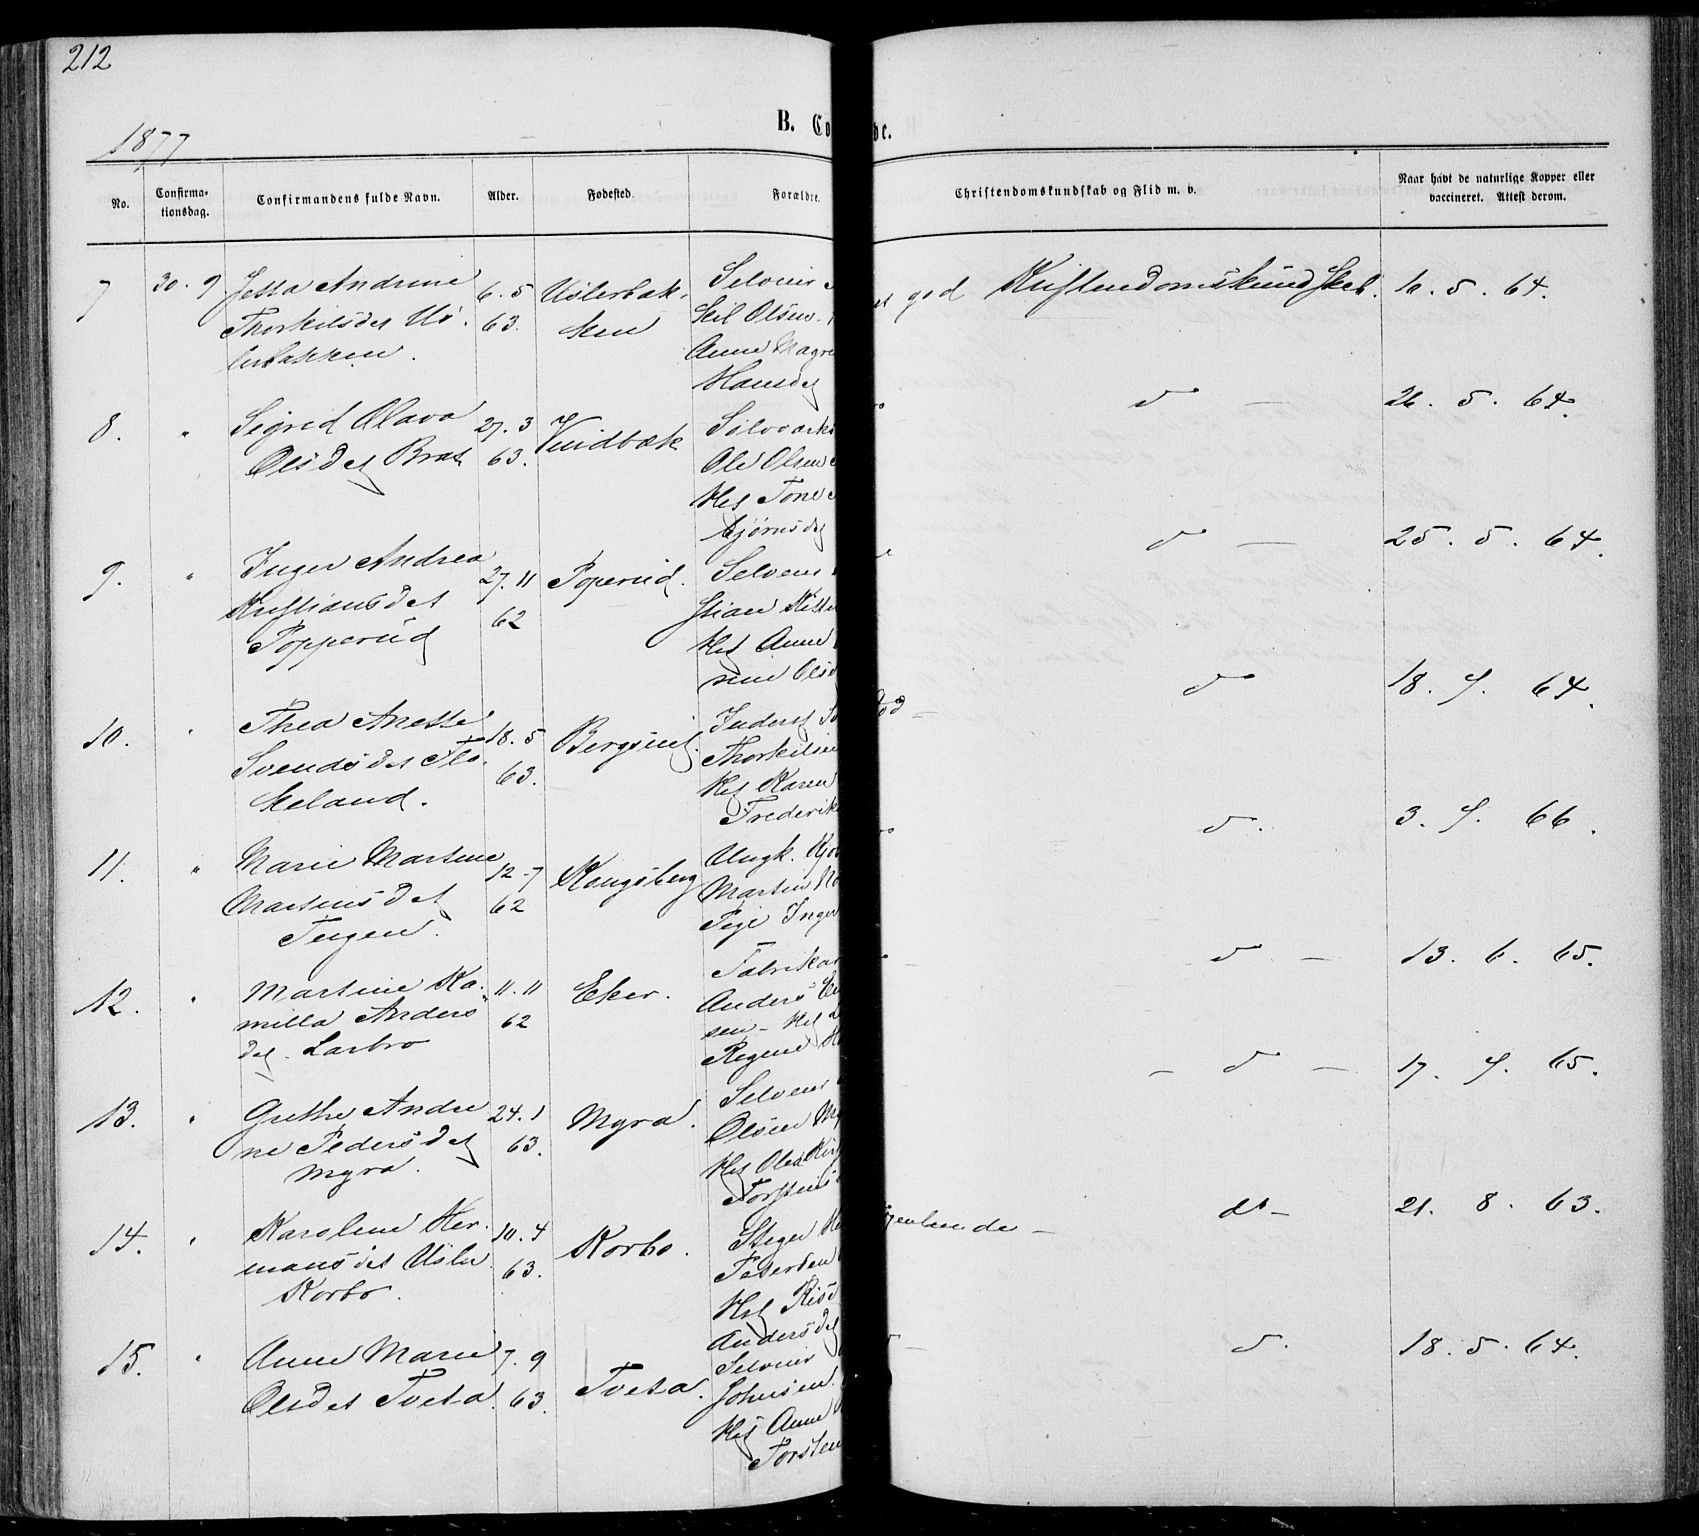 212
1877
B. Co
de.
No.
Confirma-
tionsdag.
Confirmandens fulde Navn.
Alder.
Fødested.
Forældre.
Christendomskundskab og Flid m. v.
Naar havt de naturlige Kopper eller
vaccineret. Attest derom.
7
30. 9
Andrine
Thorkilsdat Us-
lerbakken.
6. 5
63.
Uslerbak-
ken
Selveier
kil Olsen
Anne Magre
Hansdt
god Kristendomskundskab.
6. 5. 64.
8.
"
Sigrid Olava
Olsdt Braa
27. 3
63.
Vindbæk
Ole Olsen
Hst Tone
bjørnsdt
d —
26. 5. 64.
9.
"
Inger Andrea
Kristiansdat
Popperud
27. 11
62
Poperud.
Selveier
stian
Hst Anne
rine Olsd
d —
25. 5. 64.
10.
"
Thea Anette
Svendsdat Flo-
keland.
18. 5
63.
Inderst
Thorkilsen
Hst Karen
Frederik
d
18. 7. 64.
11.
"
Marie Martine
Martinsdt
Tingen.
12. 7
62
Kongsberg
Ungk.
Martin
Pige Inger
d.
3. 7. 66.
12.
"
Martine Ka-
milla Anders
dt. Larbro
11. 11
62
Eker.
Fabrikar
Anders
sen - Hst
Regine
d —
13. 6. 65.
13.
"
Grethe Andre
ne Pedersdt
Myra.
24. 1
63.
Myra.
Selveier
Olsen
Hst Olea
Torstens
— d —
17. 7. 65.
14.
"
Karoline Her-
mansdat Usler
Korbo.
10. 4
63.
Korbo.
Stiger
Petersen
Hst Rise
Andersdt
do —
21. 8. 63.
15.
"
Anne Marie
Olsdat Tveta.
7. 9
63.
Tveta.
Selveier
Johnsen.
Hst Anne
Torsten
d.
18. 5. 64.